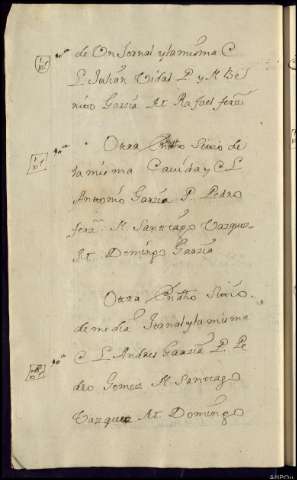 de Un Jornal y la misma C
L Julian Vidal P. y N. Be
nito Garcia At. Rafael ferz.
Otra en dho Sitio de
la misma Cavida y C L
Antonio Garcia P. Pedro
ferz. N. Santiago Vazquez
At. Domingo Garcia
Otra en dho Sitio
de media Jornal y la misma
C L Andres Garcia P. Pe
dro Gomez N. Santiago
Vazquez At. Domingo